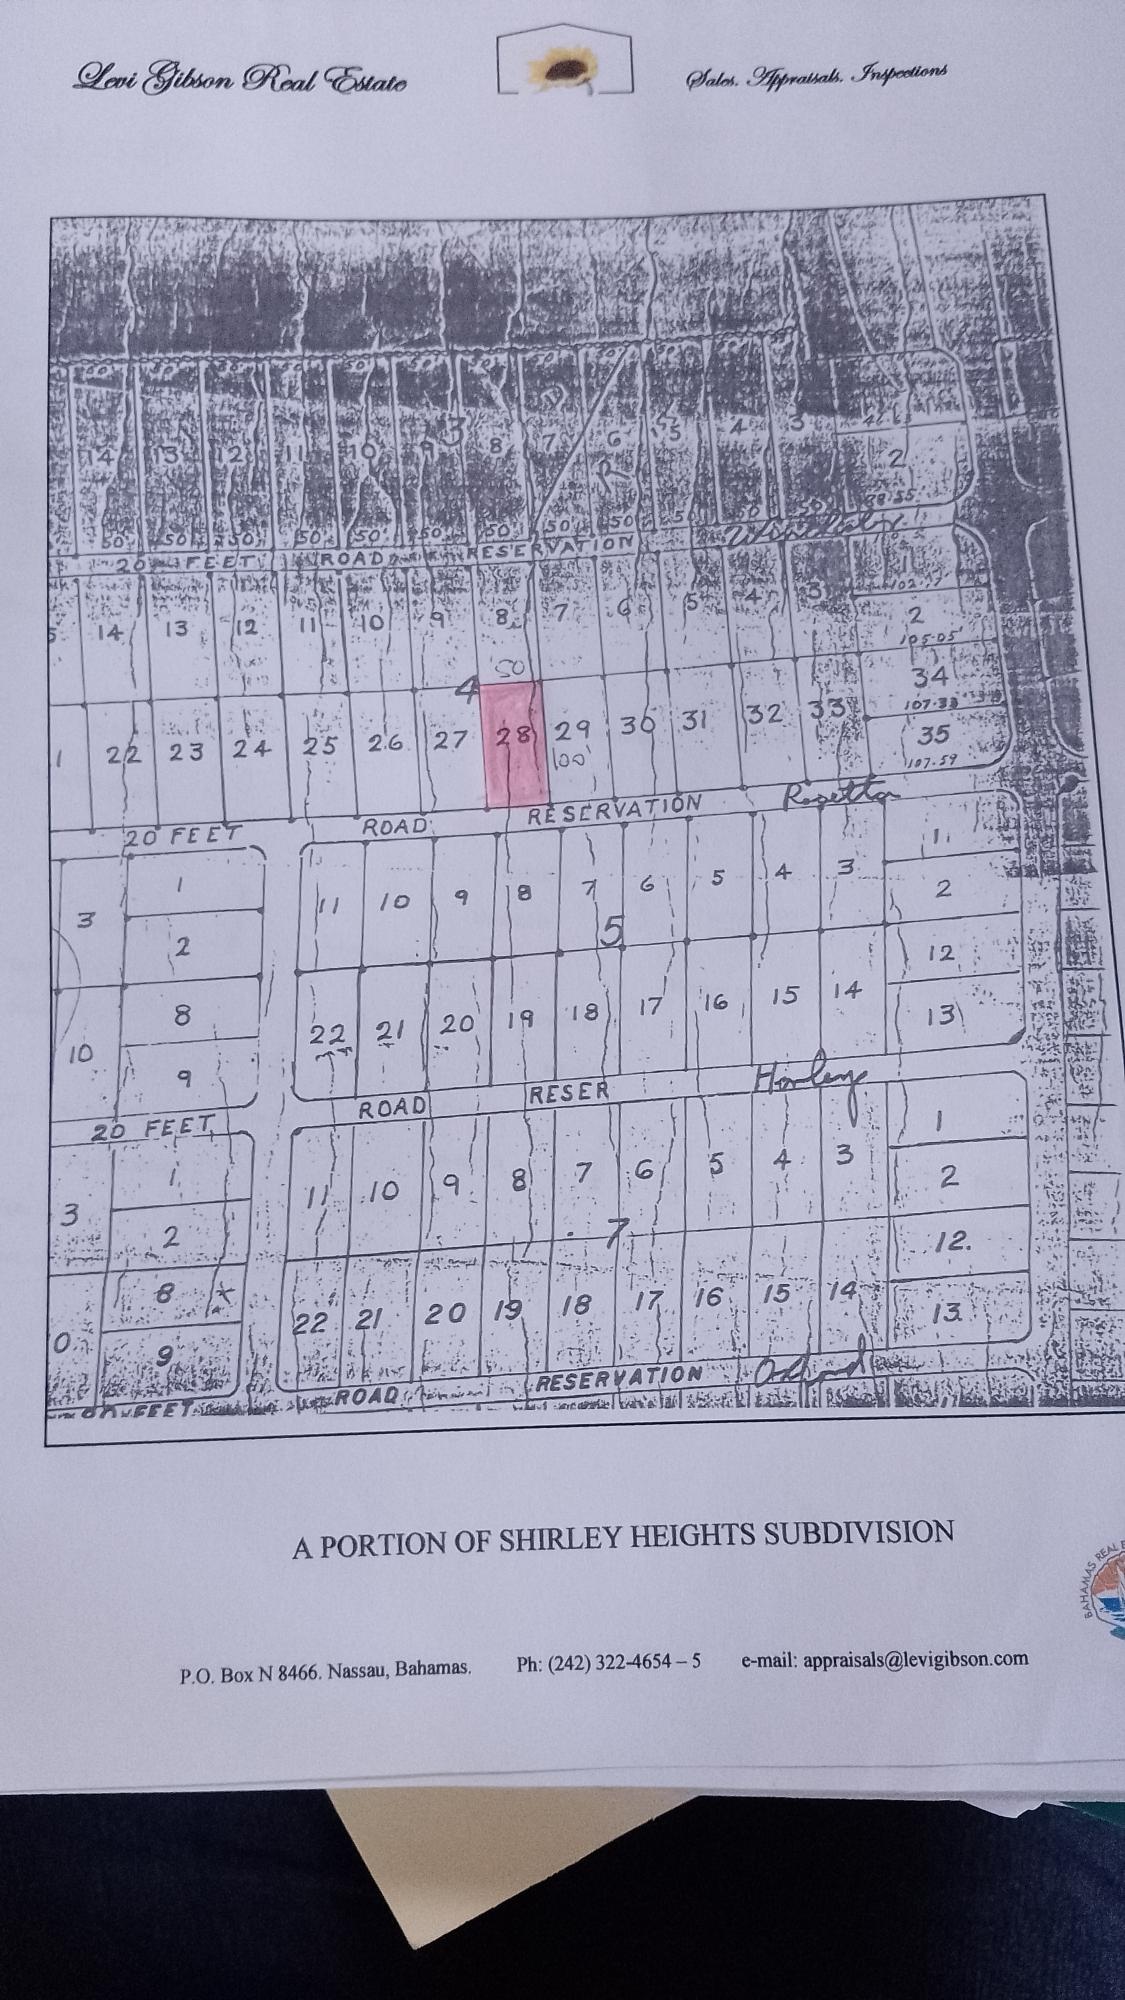 Levi Gibson Real Estate
Sales. Appraisals. Inspections
14 13 12 11 10 9 3 8 7 6 5 4 3 46.65
2
R
50 50 50 50 50 50 50 50 50
20 FEET ROAD RESERVATION
14 13 12 11 10 9 8 7 6 5 4 3 1
2
105.05
50
4
22 23 24 25 26 27 28 29 30 31 32 33 34
107.33
100
35
107.59
20 FEET ROAD RESERVATION Rosetta
3 1 11 10 9 8 7 6 5 4 3 1
2 2
5
12
10 8 22 21 20 19 18 17 16 15 14 13
9
20 FEET ROAD RESER
3 1 11 10 9 8 7 6 5 4 3 1
2 2
7
12.
8 22 21 20 19 18 17 16 15 14 13
9
FEET ROAD RESERVATION Oxford
A PORTION OF SHIRLEY HEIGHTS SUBDIVISION
BAHAMAS REAL E
P.O. Box N 8466. Nassau, Bahamas. Ph: (242) 322-4654 – 5 e-mail: appraisals@levigibson.com